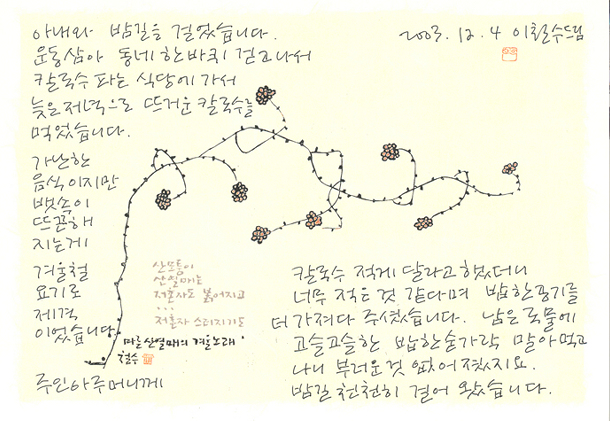 아내와 밤길을 걸었습니다.
운동삼아 동네 한바퀴 걷고나서
칼국수 파는 식당에 가서
늦은 저녁으로 뜨거운 칼국수를
먹었습니다.
가난한
음식이지만
뱃속이
뜨끈해
지는게
겨울철
요기로
제격
이었습니다
주인아주머니께
2003. 12. 4 이철수드림
산모퉁이
산열매는
저혼자도 붉어지고
...
저혼자 스러지기도
마을 산열매의 겨울노래
철수
칼국수 적게 달라고 했었더니
너무 적은 것 같다며 밥 한공기를
더 가져다 주셨습니다. 남은 국물에
고슬고슬한 밥 한숟가락 말아먹고
나니 부러운것 없어졌지요.
밤길 천천히 걸어 왔습니다.